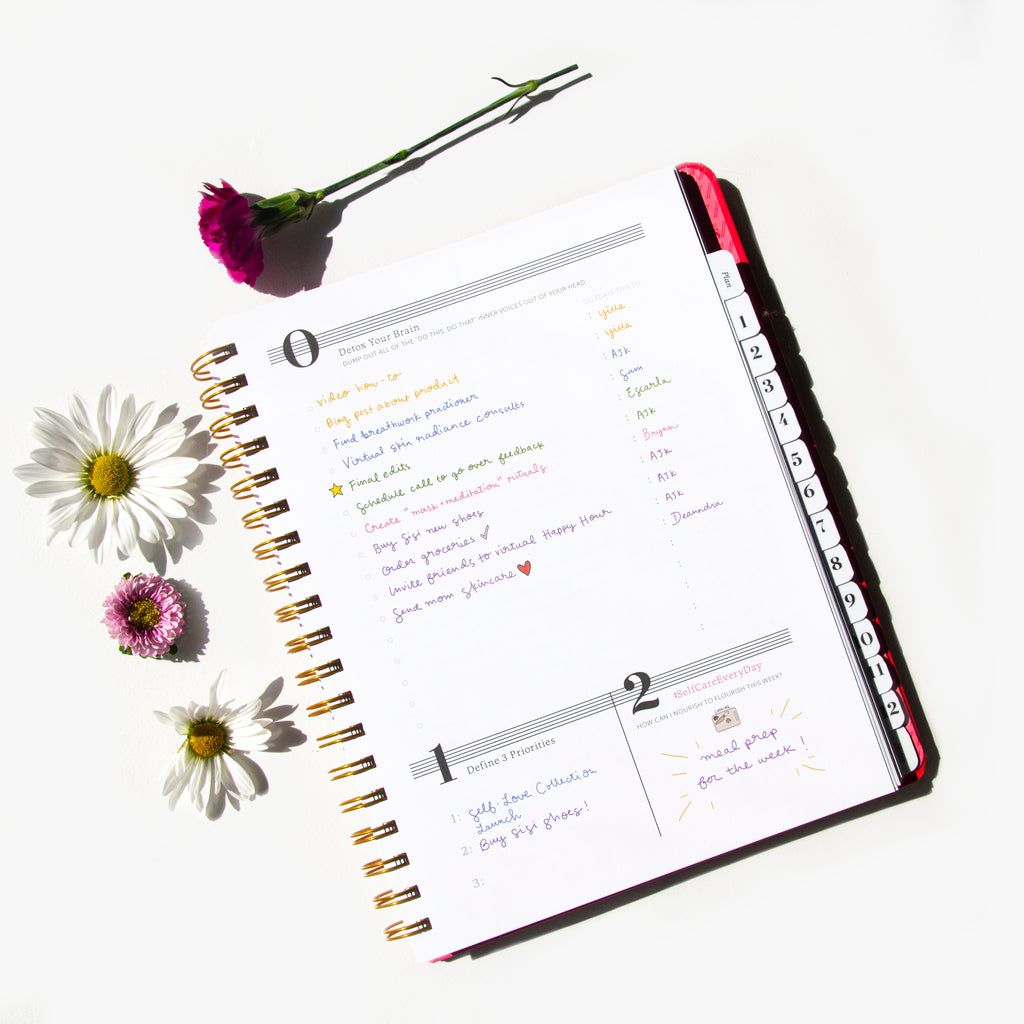 0
Detox Your Brain
DUMP OUT ALL OF THE "DO THIS, DO THAT" INNER VOICES OUT OF YOUR HEAD
DELEGATE THIS TO
Video how-to : yilla
Blog post about product : yilla
Find breathwork practioner : AJK
Virtual skin radiance consults : Sam
Final edits : Escarla
Schedule call to go over feedback : AJK
Create "mask + meditation" rituals : Brynn
Buy Sisi new shoes : AJK
Order groceries : AJK
Invite friends to virtual Happy Hour : AJK
Send mom skincare : Deanndra
1
Define 3 Priorities
1: Self-Love Collection
Launch
2: Buy Sisi shoes!
3:
2
#SelfCareEveryDay
HOW CAN I NOURISH TO FLOURISH THIS WEEK?
meal prep
for the week!
Plan
1
2
3
4
5
6
7
8
9
0
1
2